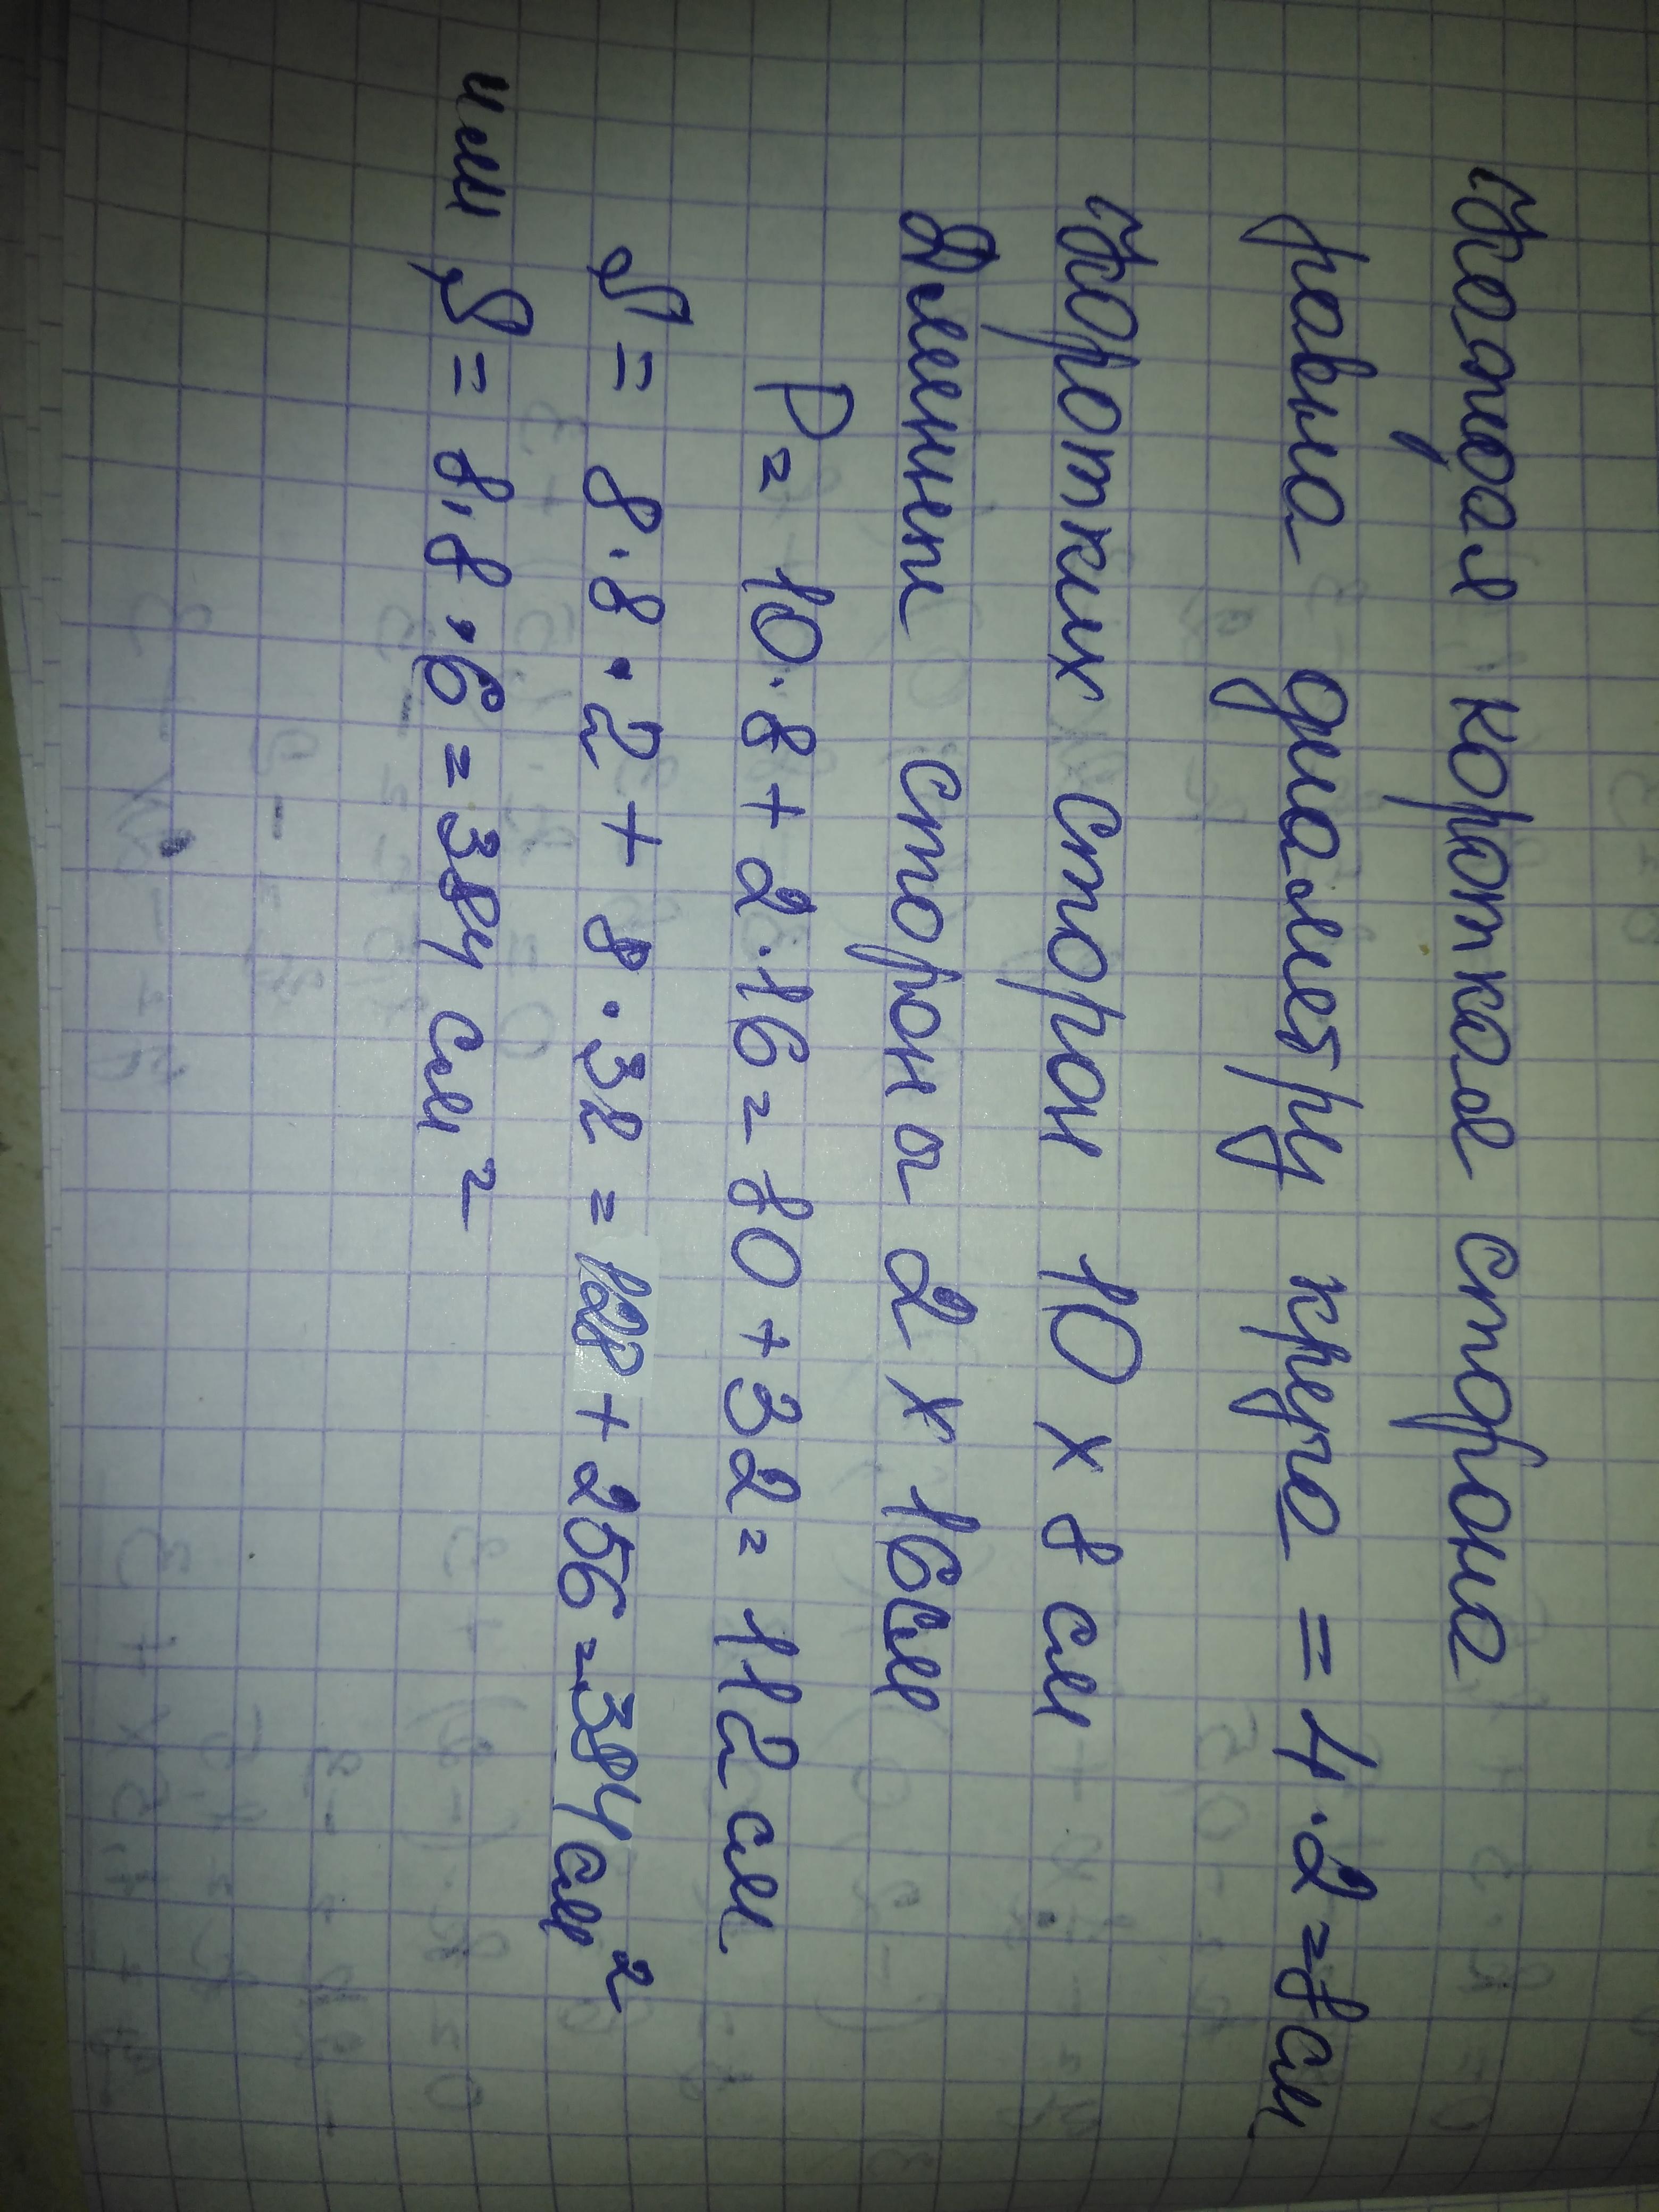 Каждая короткая сторона
равна диаметру круга = 4·2=8см
Коротких сторон 10 х 8 см
Длинных стороны 2 х 16см
P= 10·8+2·16=80+32=112см
S= 8·8·2+8·32=128+256=384см²
или S=8·8·6=384 см²